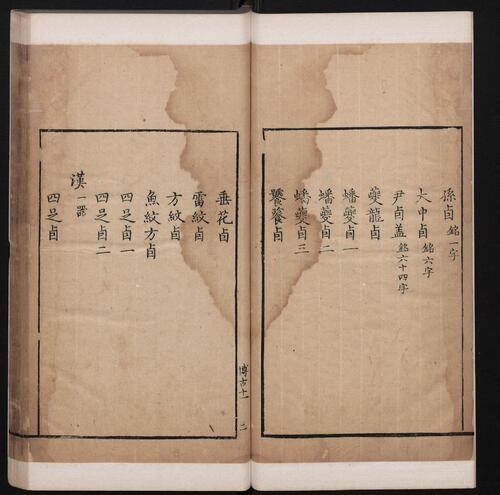 孫卣 銘一字
大中卣 銘六字
尹卣蓋 銘六十四字
夔龍卣
蟠夔卣一
蟠夔卣二
蟠夔卣三
饕餮卣
垂花卣
雷紋卣
方紋卣
魚紋方卣
四足卣一
四足卣二
漢 一器
四足卣
博古十一 二